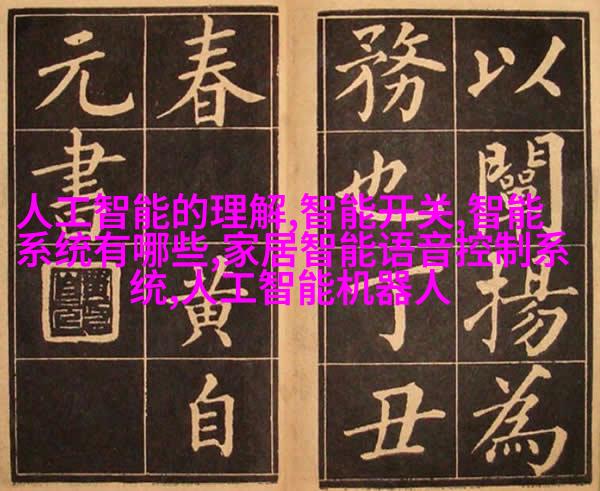 以闡揚為
務也丁丑
春黃自
元書
人工智能的理解,智能开关,智能
系统有哪些,家居智能语音控制系
统,人工智能机器人